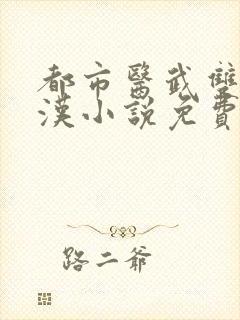 都市醫武雙
漢小說免費
路二爺